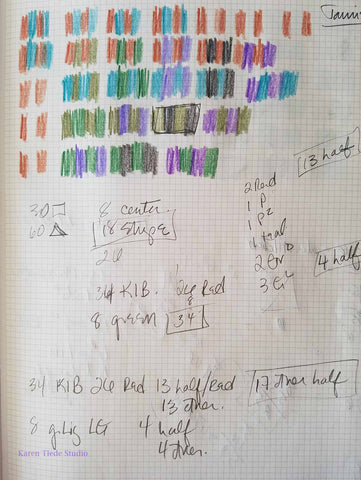 13 half
2 Red
1 P
1 P2
1 teal
2 Gr
3 Gr2
30
60
8 center.
18 Stripe
26
4 half
34 KIB. 26 Red
8
8 green 34
34 KIB 26 Red 13 half/Red
13 other.
17 other half
8 LG 4 half
4 other.
Karen Tiede Studio